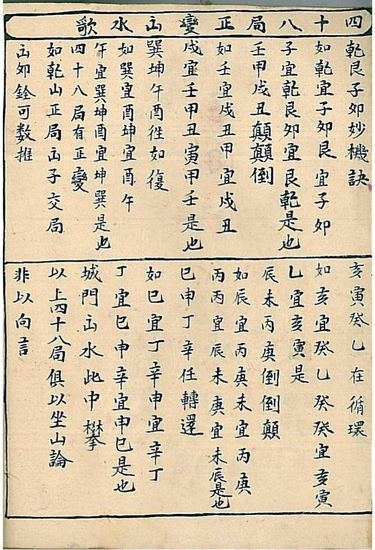 四十八局正變出水歌
乾艮子卯妙機訣
如乾宜子卯艮宜子卯
子宜乾艮卯宜艮乾是也
壬甲戌丑顛顛倒
如壬宜戌丑甲宜戌丑
戌宜壬甲丑寅甲壬是也
巽坤午酉徃如復
如巽宜酉坤宜酉午
午宜巽坤酉宜坤巽是也
四十八局有正變
如乾山正局出子交局
出卯銓可数推
亥寅癸乙在循環
如亥宜癸乙癸癸宜亥寅
乙宜亥寅是
辰未丙庚倒倒顛
如辰宜庚未宜丙庚
丙丙宜辰未庚宜未辰是也
巳申丁辛任轉還
如巳宜丁辛申宜辛丁
丁宜巳申辛宜申巳是也
城門出水此中攀
以上四十八局俱以坐山論
非以向言